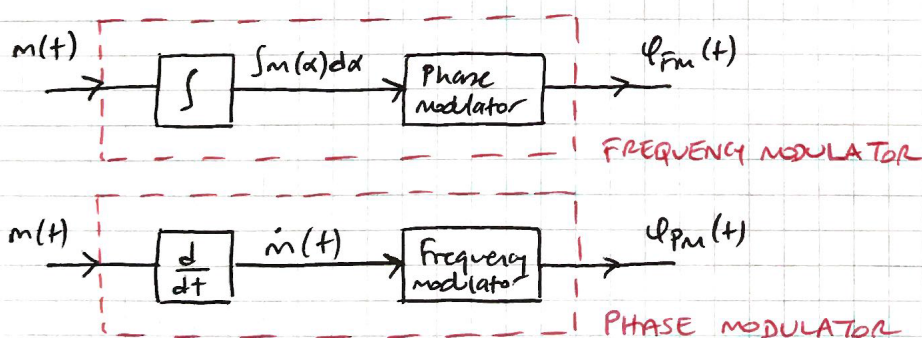 m(t) ∫ ∫m(α)dα Phase modulator φFM(t)
FREQUENCY MODULATOR
m(t) d/dt ṁ(t) Frequency modulator φPM(t)
PHASE MODULATOR